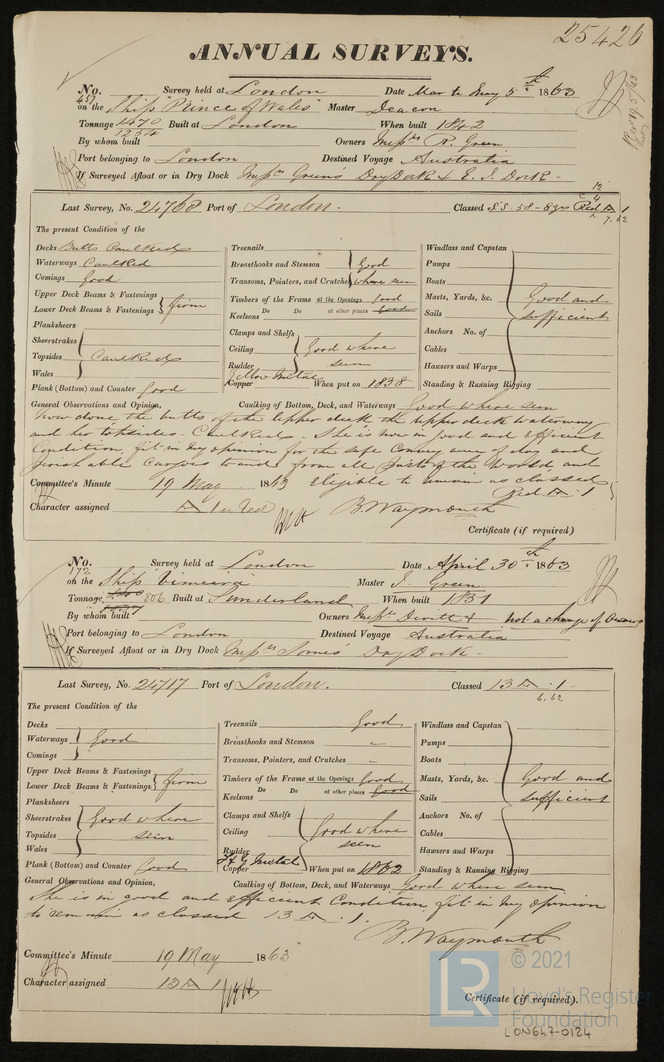 25426
ANNUAL SURVEYS.
No. 457 Survey held at London Date Mar to May 5th 1863
on the Ship "Prince of Wales" Master Deacon
Tonnage 1470 Built at London When built 1842
1254
By whom built Owners Messrs R. Green
Port belonging to London Destined Voyage Australia
If Surveyed Afloat or in Dry Dock Messrs Green's Dry Dock & E. I. Dock
Last Survey, No. 24768 Port of London. Classed S.S. 58 - 8 yrs Red A 1
7.62
The present Condition of the
Decks Butts Caulked
Waterways Caulked
Comings Good
Upper Deck Beams & Fastenings
Lower Deck Beams & Fastenings } firm
Planksheers
Sheerstrakes
Topsides Caulked
Wales
Plank (Bottom) and Counter Good
Treenails
Breasthooks and Stemson Good
Transoms, Pointers, and Crutches where seen
Timbers of the Frame at the Openings good
Do Do at other places good
Keelsons
Clamps and Shelfs
Ceiling Good where
Rudder seen
Yellow Metal
Copper When put on 1858
Windlass and Capstan
Pumps
Boats
Masts, Yards, &c. Good and
Sails sufficient
Anchors No. of
Cables
Hawsers and Warps
Standing & Running Rigging
General Observations and Opinion, Caulking of Bottom, Deck, and Waterways Good where seen
now done the butts of the Upper deck the upper deck waterway
and her topsides Caulked She is now in good and efficient
Condition, fit in my opinion for the safe Conveyance of dry and
perishable Cargoes to and from all parts of the World, and
eligible to remain as classed
Red A 1
Committee's Minute 19 May 1863
Character assigned A 1 in red
B. Waymouth
Certificate (if required)
No. 172 Survey held at London Date April 30th 1863
on the Ship Vimeira Master J. Green
Tonnage 886 Built at Sunderland When built 1851
By whom built Owners Messrs Devitt & Not a change of Owners
Port belonging to London Destined Voyage Australia
If Surveyed Afloat or in Dry Dock Messrs Somes' Dry Dock
Last Survey, No. 24717 Port of London. Classed 13 A . 1
6.62
The present Condition of the
Decks
Waterways Good
Comings
Upper Deck Beams & Fastenings
Lower Deck Beams & Fastenings } firm
Planksheers
Sheerstrakes Good where
Topsides seen
Wales
Plank (Bottom) and Counter Good
Treenails Good
Breasthooks and Stemson "
Transoms, Pointers, and Crutches "
Timbers of the Frame at the Openings Good
Do Do at other places Good
Keelsons
Clamps and Shelfs
Ceiling Good where
Rudder seen
Metal
Copper When put on 1862
Windlass and Capstan
Pumps
Boats
Masts, Yards, &c. Good and
Sails sufficient
Anchors No. of
Cables
Hawsers and Warps
Standing & Running Rigging
General Observations and Opinion, Caulking of Bottom, Deck, and Waterways Good where seen
She is in good and efficient Condition fit in my opinion
to remain as classed 13 A . 1.
B. Waymouth
Committee's Minute 19 May 1863
Character assigned 13 A 1
Certificate (if required).
© 2021
LR Lloyd's Register
Foundation
LON647-0124